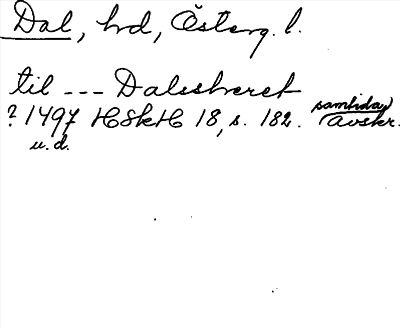 Dal, hrd, Österg. l.
til --- Dalsshæret
? 1497 HSkH 18, s. 182. samtida avskr.
u. d.